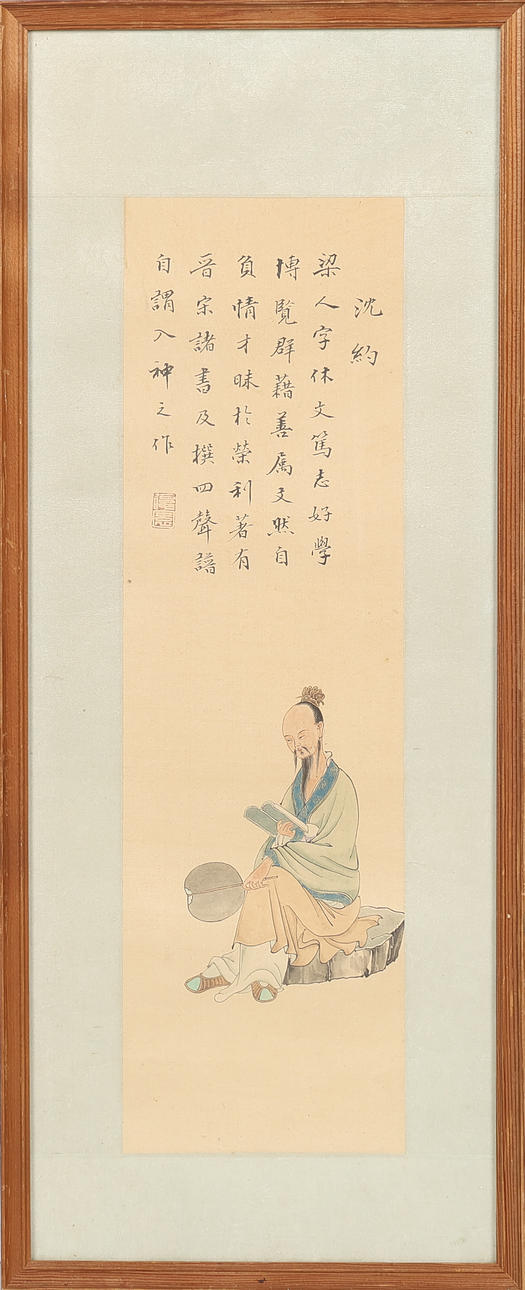 沈約
梁人字休文篤志好學
博覽群藉善屬文然自
負情才昧於榮利著有
晉宋諸書及撰四聲譜
自謂入神之作